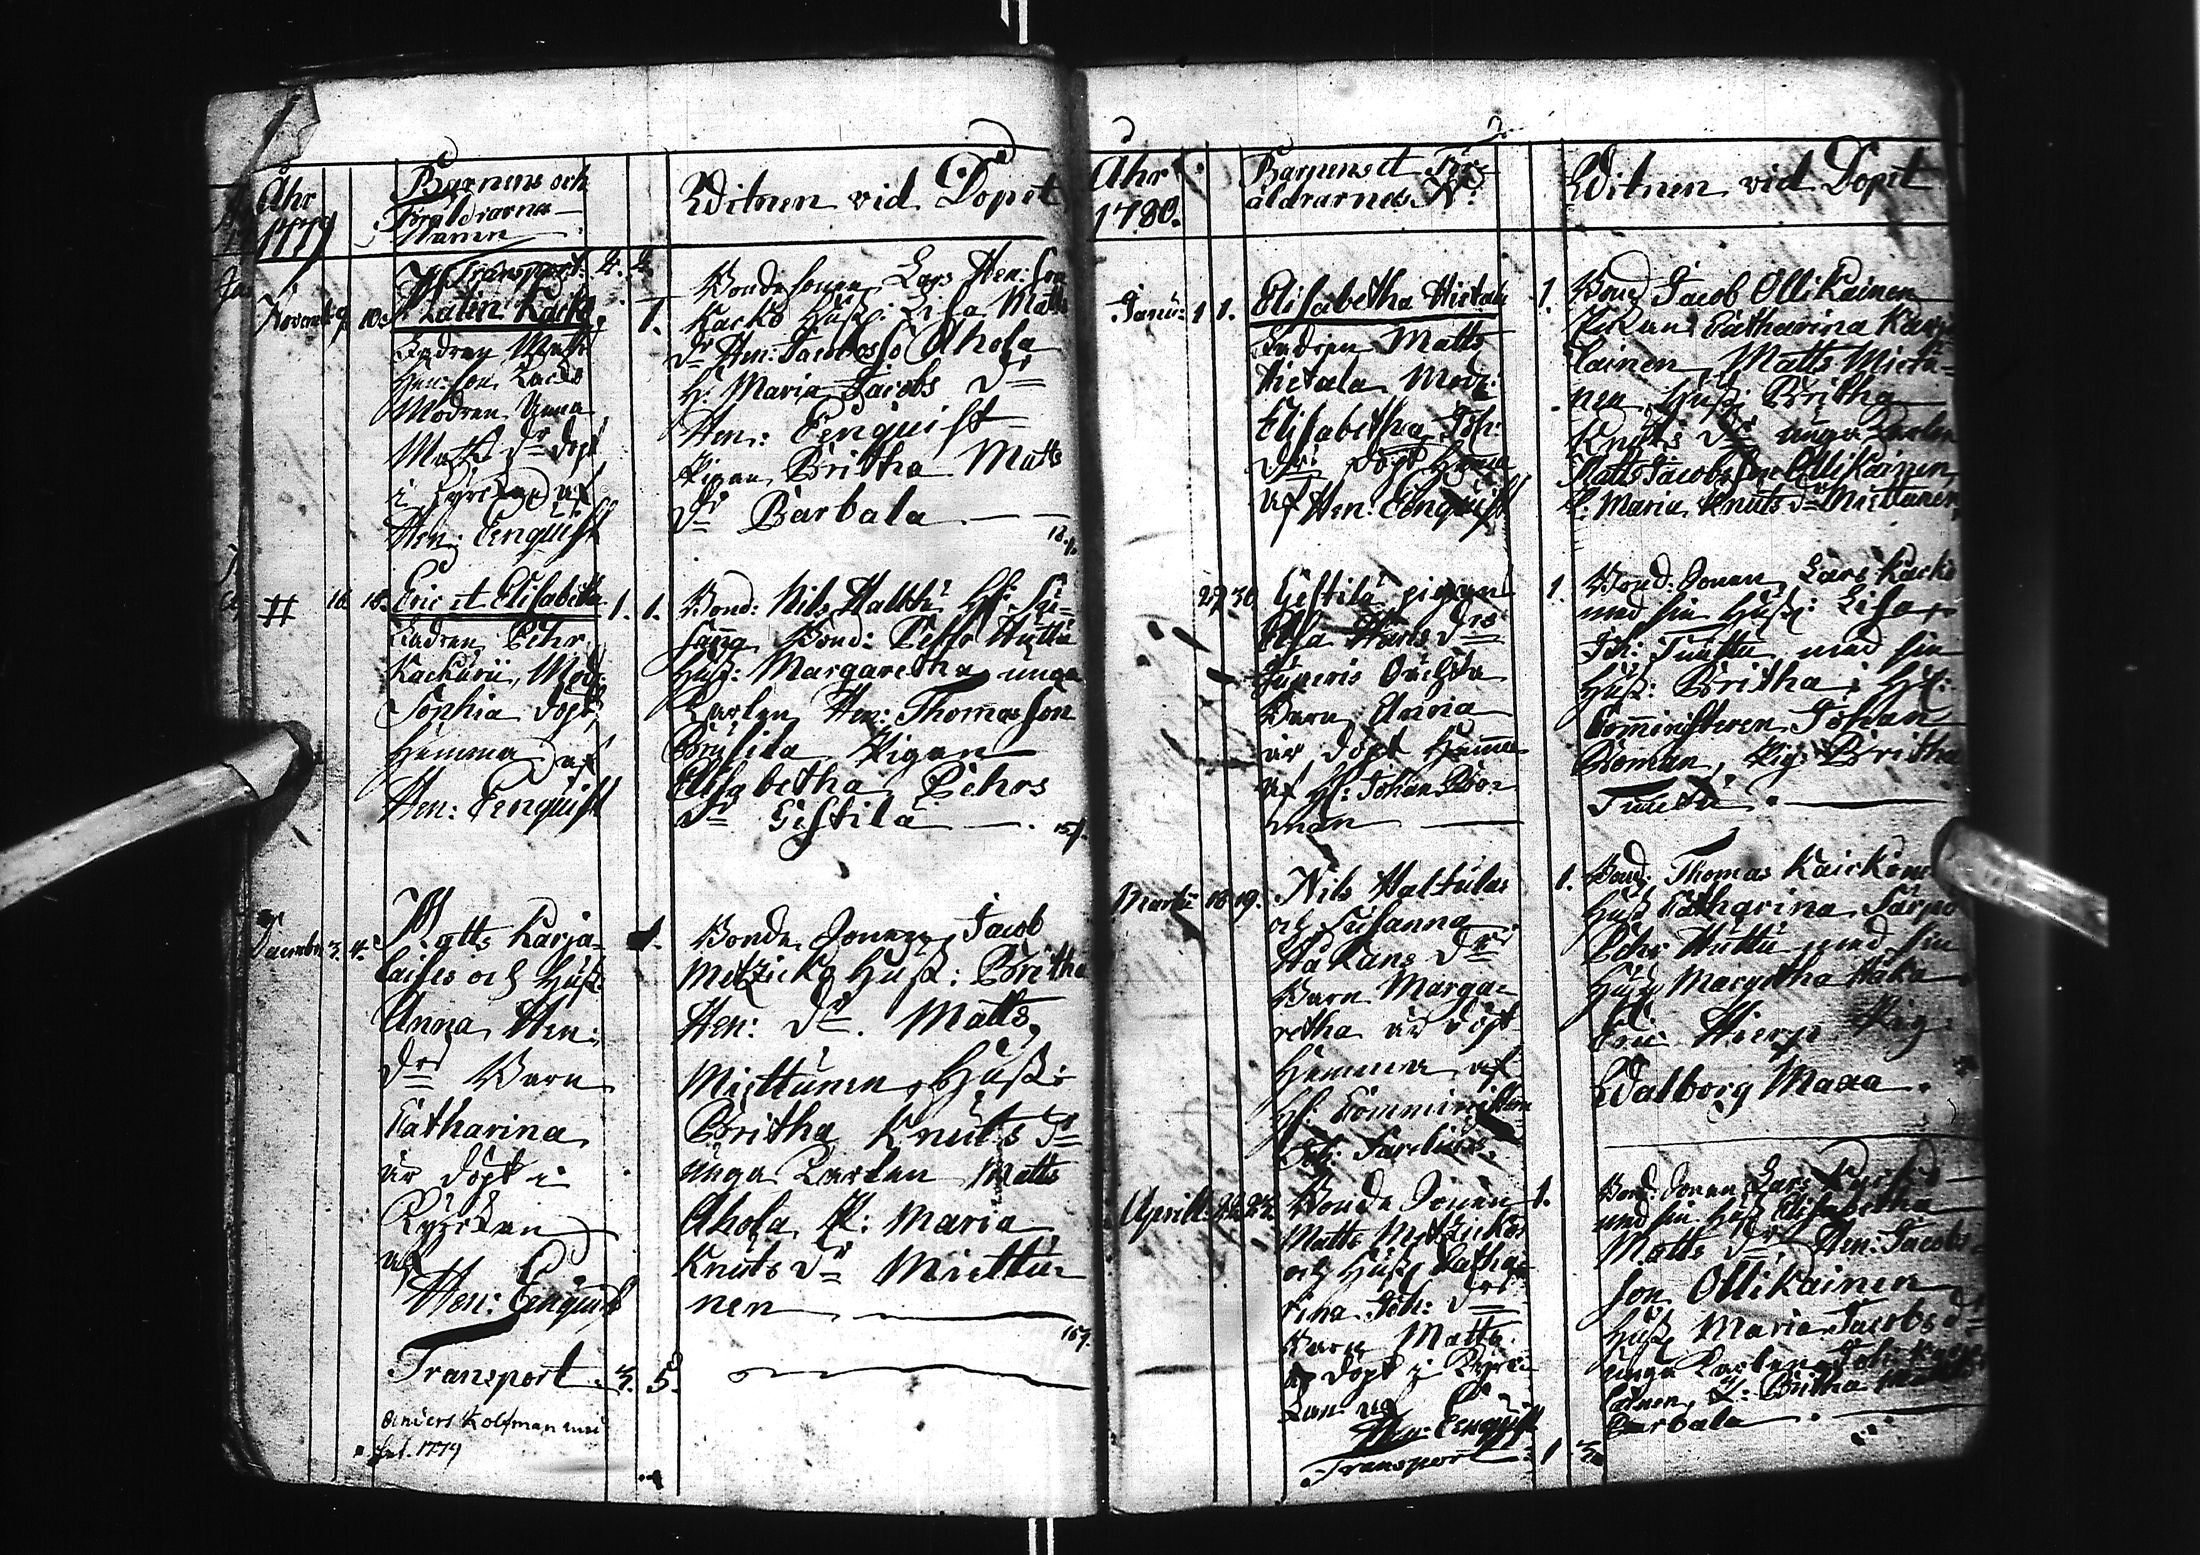 Åhr
1779
Barnens och
Föräldrarnas
Namn
Witnen vid Dopet
Transport: 2. 2.
Novemb: 9. 10.
Malin Kacko
1.
Fadren Matts
Hen: son Kacko
Modren Anna
Matts dr döpt
i Kyrckan af
Hen: Eenquist
Bondesonen Lars Hen: son
Kacko Hust: Lisa Matts
dr Hen: Jacobsso Ahola
H: Maria Jacobs dr
Hen: Eenquist
Pigan Britha Matts
dr Barbala
Eric et Elisabetha 1. 1.
Fadren Pehr
Kackurii, Mod:
Sophia döpt
Hemma af
Hen: Eenquist
Bond: Nils Halttu H: Su-
sanna Bond: Pehr Huttu
Hust: Margaretha unga
Karlen Hen: Thomasson
Pigan
Elisabetha Pehrs
dr Gistila
15/.
Decembr 3. 4.
Matts Karja-
laises och Hust:
Anna Hen:
drs Barn
Catharina
är döpt i
Kyrckan
af
Hen: Eenquist
1.
Bonde Sonen Jacob
Metzicko Hust: Britha
Hen: dr. Matts
Miettunen, Hust:
Britha Knuts dr
unga Karlen Matts
Ahola P: Maria
Knuts dr Miettu-
nen
Transport 3. 5.
Anders Kolfman
1779
Åhr
1780.
Barnens et För-
äldrarnas N:
Witnen vid Dopet
Janu: 1 1.
Elisabetha Hietala
1.
Fadren Matts
Hietala Mod:
Elisabetha Joh:
dr: döpt Hemma
af Hen: Eenquist
Bond Jacob Ollikainen
Pikan Catharina Karja
lainen, Matts Mietu-
nen Hust: Britha
Knuts dr unga Karlen
Matts Jacobs Son Ollikainen
P: Maria Knuts dr Miettunen
29 30
Gistilä pigans
Elsa Hans drs
Barn Anna
är döpt Hemma
af H: Johan Bro-
man
1.
Bond: Sonen Lars Kacko
med sin Hust: Lisa
Joh: Tuisku med sin
Hust: Britha, H:
Comministeren Johan
Broman, Pig: Britha
Martii 18 19.
Nils Haltulas
och Susanna
Håkans drs
Barn Marga-
retha är döpt
Hemma af
H: Comministern
1.
Bond: Thomas Kairkone
Hust Catharina Särpä
Pehr Huttu med sin
Hust Margetha Håka
Eric Hierp Pig:
Walborg Maxa.
Aprill. 22. 24.
Bonde Sonen
Matts Metzickos
och Hust Catha-
rina Joh: drs
Barn Matts
är döpt i Kyrc-
kan af
Hen: Eenquist
1.
Bond: Sonen Lars
med sin Hust Elisabetha
Matts dr Hen: Jacobs-
son Ollikainen
Hust Maria Jacobs dr
unga Karlen Joh:
P: Britha Matts
Barbala
Transport 1 3